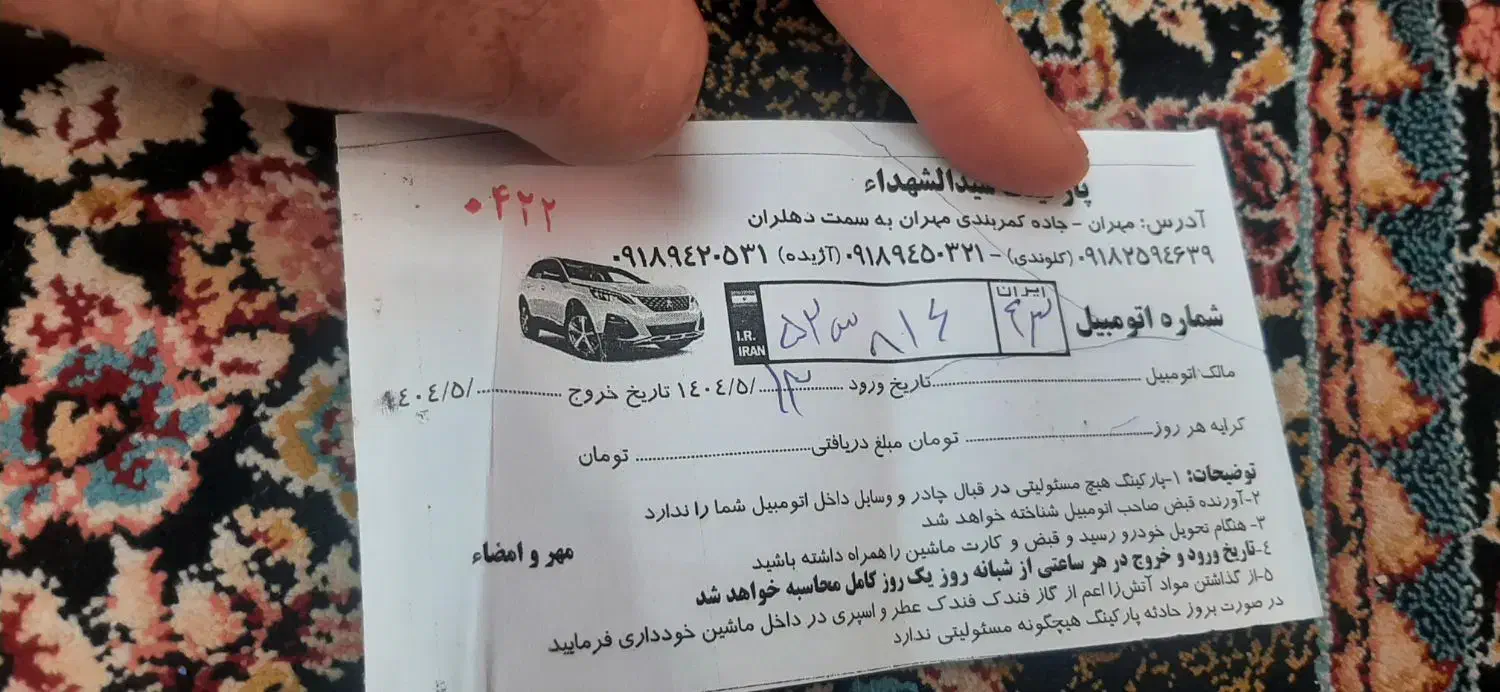 سیدالشهداء
۰۴۲۲
آدرس: مهران - جاده کمربندی مهران به سمت دهلران
۰۹۱۸۲۵۹٤٦۳۹ (کلوندی) - ۰۹۱۸۹٤۵۰۳۲۱ (آژیده) ۰۹۱۸۹٤۲۰۵۳۱
شماره اتومبیل
I.R. IRAN ۵۲ س ۸۱٤ ایران ۶۳
مالک اتومبیل ........................ تاریخ ورود ..۱۲../۱٤۰٤/۵ تاریخ خروج ............./۱٤۰٤/۵
کرایه هر روز ........................ تومان مبلغ دریافتی ........................ تومان
توضیحات: ۱-پارکینگ هیچ مسئولیتی در قبال چادر و وسایل داخل اتومبیل شما را ندارد
۲-آورنده قبض صاحب اتومبیل شناخته خواهد شد
۳- هنگام تحویل خودرو رسید و قبض و کارت ماشین را همراه داشته باشید
٤-تاریخ ورود و خروج در هر ساعتی از شبانه روز یک روز کامل محاسبه خواهد شد
۵-از گذاشتن مواد آتش‌زا اعم از گاز فندک فندک عطر و اسپری در داخل ماشین خودداری فرمایید
در صورت بروز حادثه پارکینگ هیچگونه مسئولیتی ندارد
مهر و امضاء